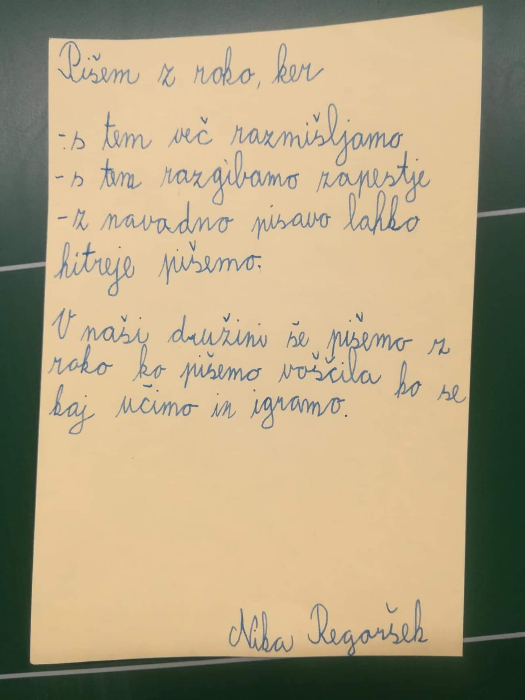 Pišem z roko, ker
- s tem več razmišljamo
- s tem razgibamo zapestje
- z navadno pisavo lahko
hitreje pišemo.
V naši družini še pišemo z
roko ko pišemo voščila ko se
kaj učimo in igramo.
Nika Regoršek